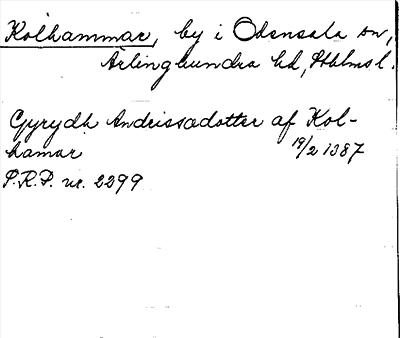 Kolhammar, by i Odensala sn,
Ärlinghundra hd, Sthlms l.
Gyrydh Andrissadotter af Kol-
hamar 19/2 1387
P.R.P. nr. 2299